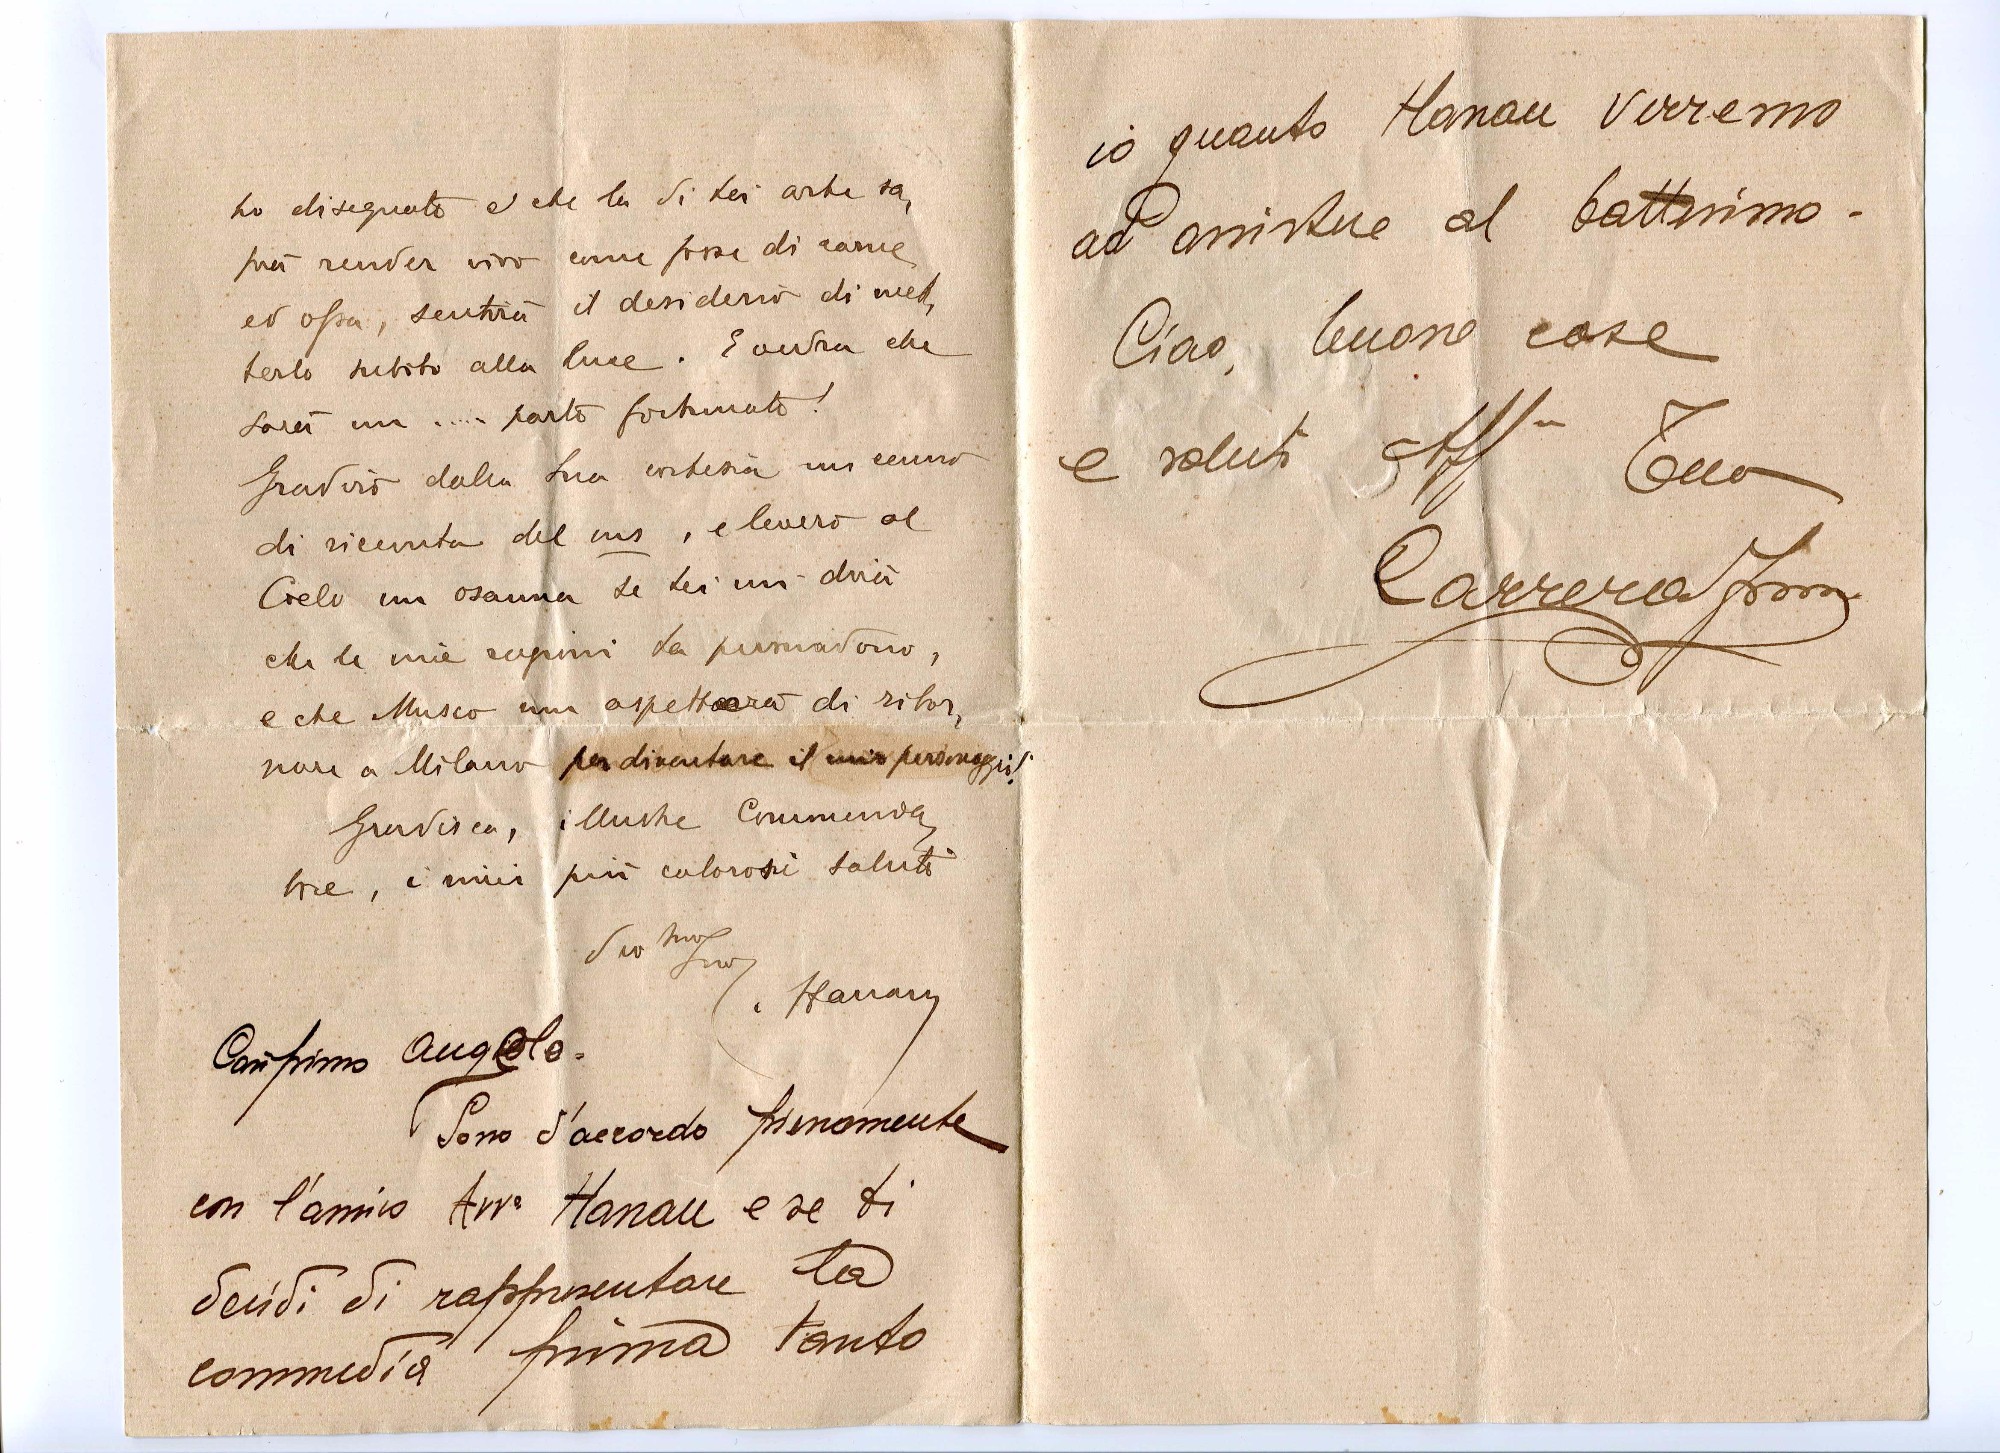 ho disegnato e che la di Lei arte sa,
prà render vivo come fosse di carne
ed ossa, sentirà il desiderio di met,
terlo subito alla luce. E vedrà che
sarà un .... parto fortunato!
Gradirò dalla Sua cortesia un cenno
di ricevuta del ms, e leverò al
Cielo un osanna se Lei mi dirà
che le mie ragioni La persuadono,
e che Musco non aspetterà di ritor,
nare a Milano per diventare il mio personaggio!
Gradisca, illustre Commenda,
tore, i miei più calorosi saluti
Suo
Hanau
Carissimo Angelo.
Sono d'accordo pienamente
con l'amico Avv.º Hanau e se ti
decidi di rappresentare la
commedia prima tanto
io quanto Hanau verremo
ad assistere al battesimo -
Ciao, buone cose
e saluti aff.mi Tuo
Carrera